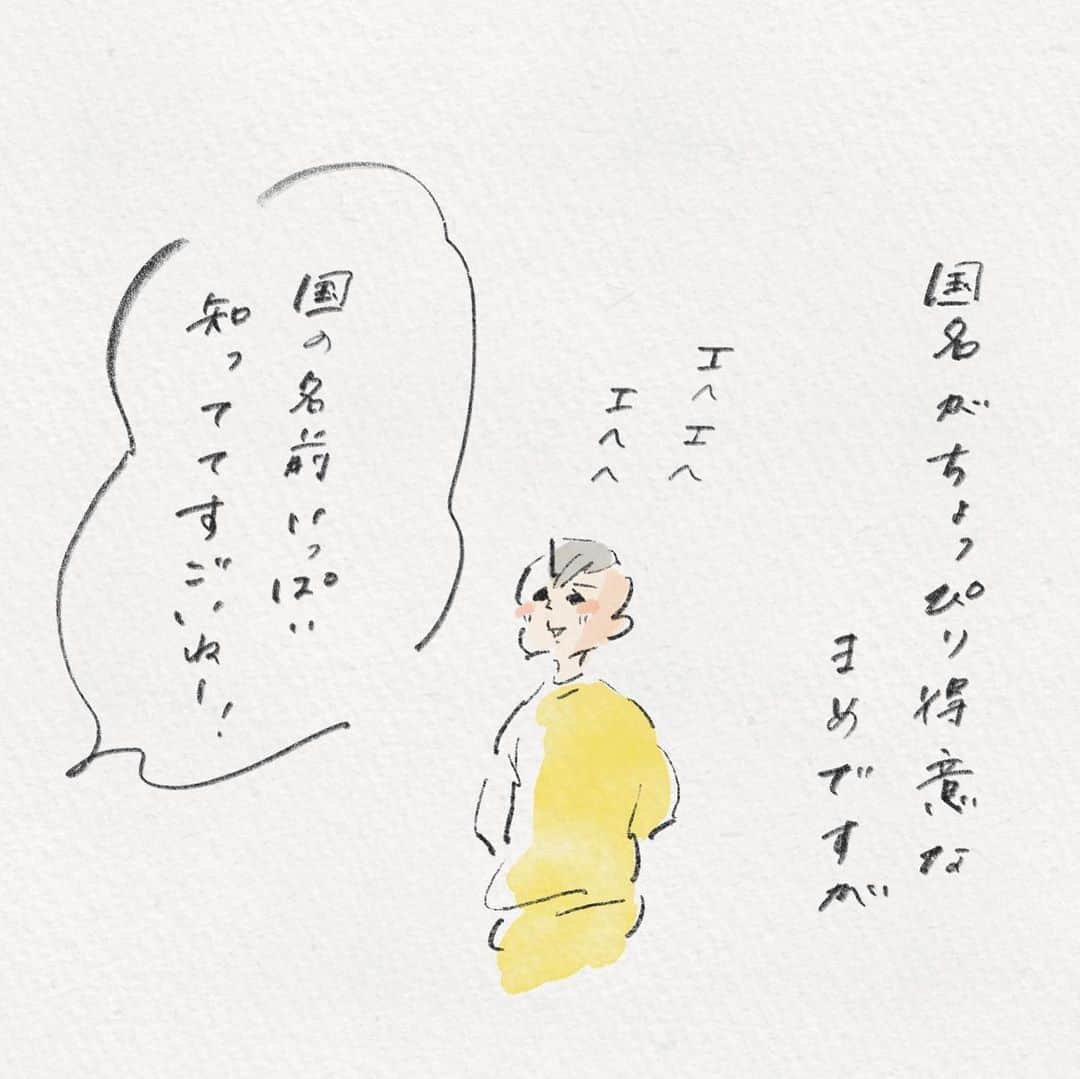 国名がちょっぴり得意な
まめですが
エヘエヘ
エヘヘ
国の名前いっぱい
知っててすごいねー！